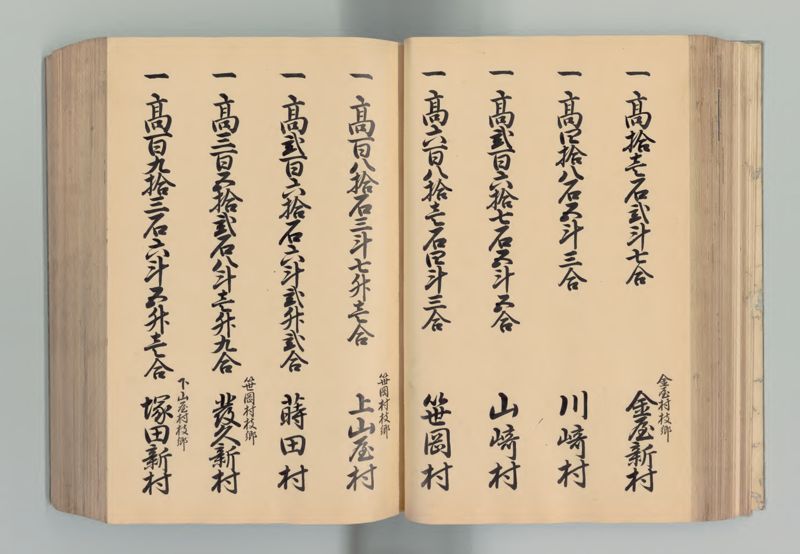 一 高拾壱石弐斗七合
金屋村枝郷
金屋新村
一 高四拾八石五斗三合
川崎村
一 高弐百六拾七石五斗五合
山崎村
一 高六百八拾壱石四斗三合
笹岡村
一 高百八拾石三斗七升壱合
笹岡村枝郷
上山屋村
一 高弐百六拾石六斗弐升弐合
蒔田村
一 高三百五拾弐石八斗壱升九合
笹岡村枝郷
発久新村
一 高百九拾三石六斗五升壱合
下山屋村枝郷
塚田新村